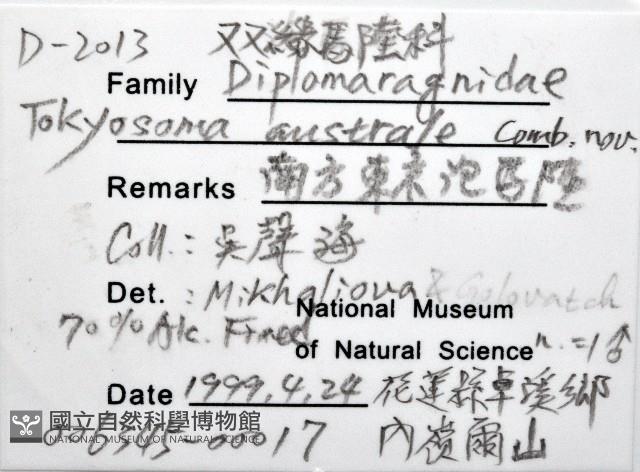 D-2013 双線馬陸科
Family Diplomaragnidae
Tokyosoma australe Comb. nov.
Remarks 南方東京泡馬陸
Coll.: 吳聲海
Det.: Mikhaliova & Golovatch
National Museum
70% Alc. Fixed
of Natural Science n.=1♂
Date 1999.4.24 花蓮縣卓溪鄉
國立自然科學博物館
NATIONAL MUSEUM OF NATURAL SCIENCE
00017 內嶺爾山